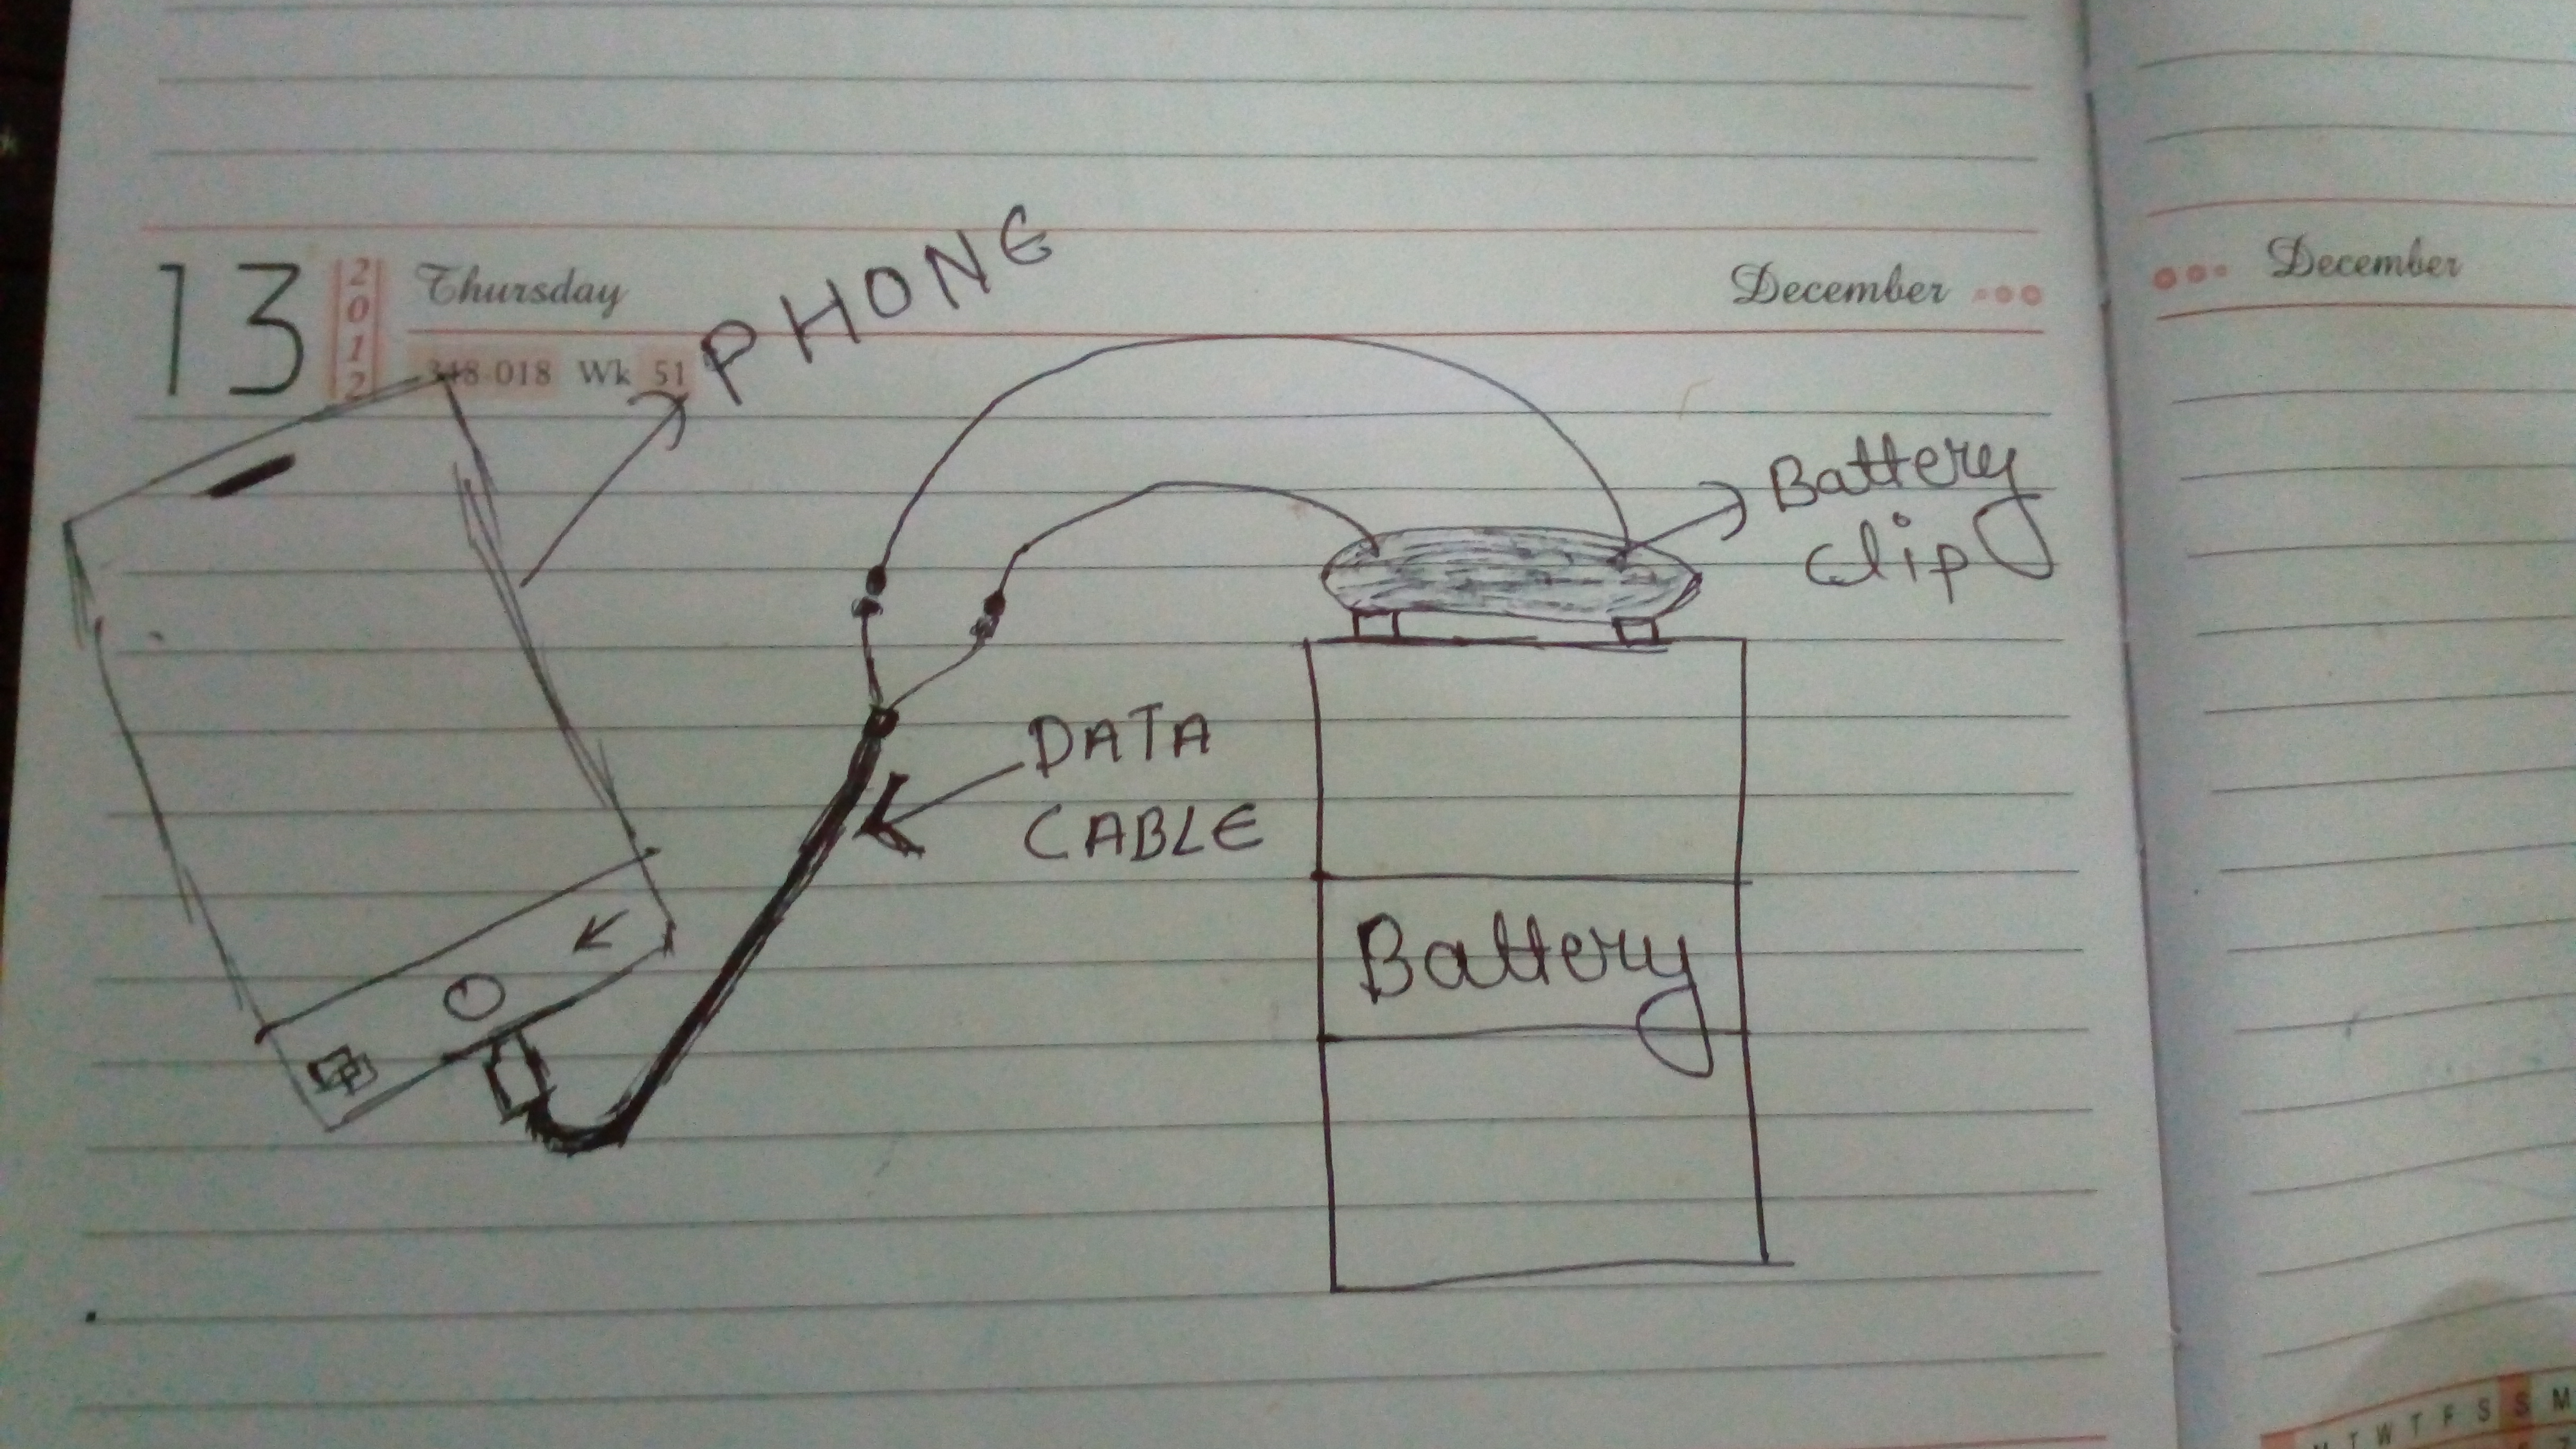 13
2012
Thursday
December
December
348-018 Wk 51
PHONE
Battery
clip
DATA
CABLE
Battery
T W T F S S M